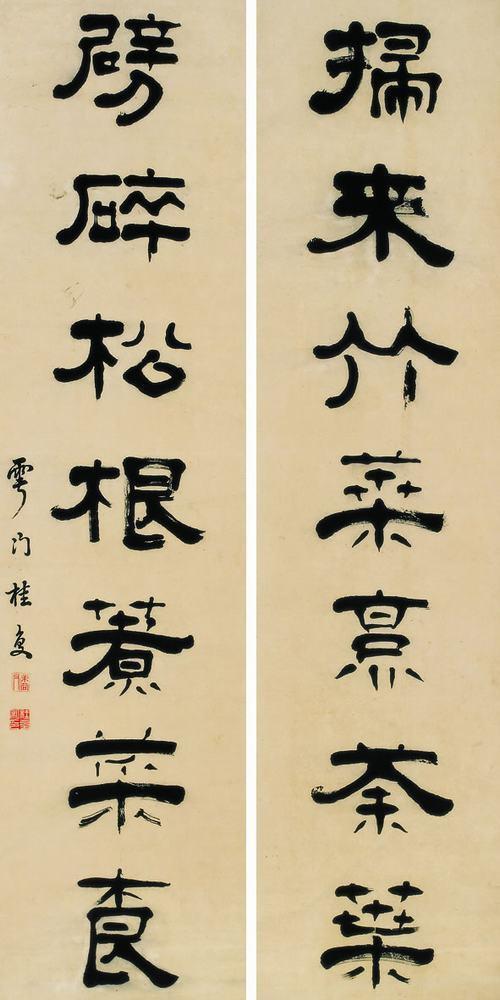 掃來竹葉烹茶葉
劈碎松根煮菜根
雩門桂复